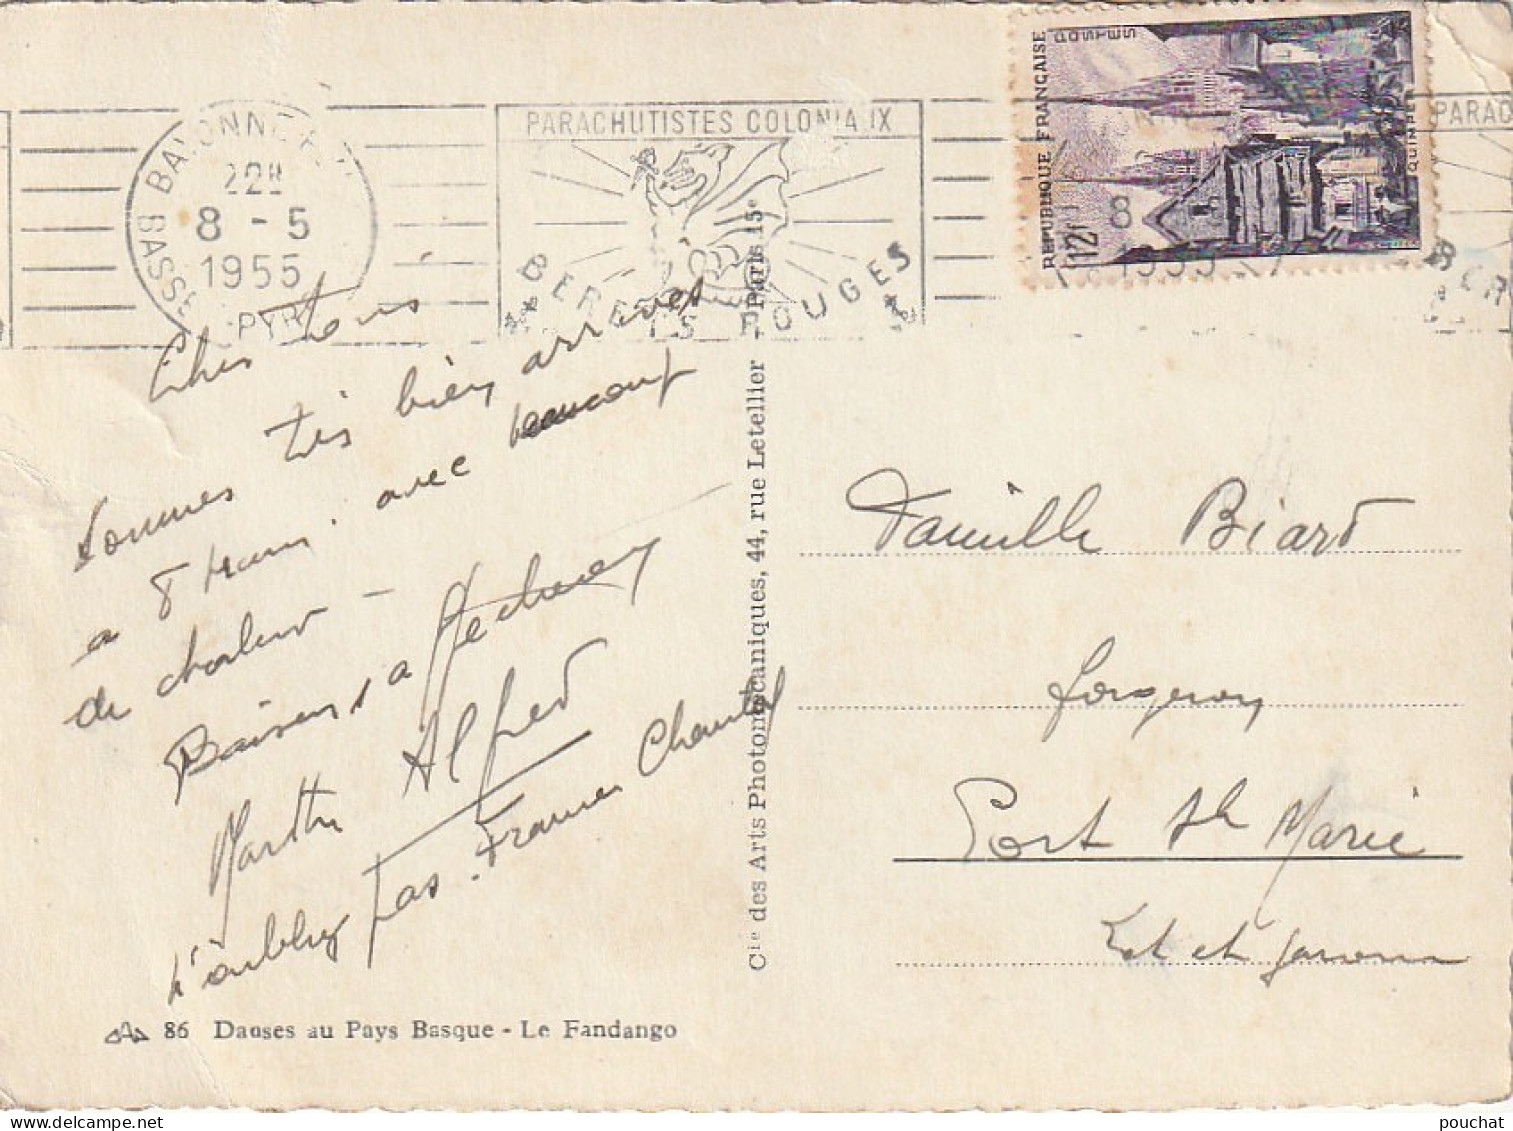 BAYONNE
22H
8 - 5
1955
BASSES PYR
PARACHUTISTES COLONIAUX
BERETS ROUGES
REPUBLIQUE FRANÇAISE
POSTES
12f
QUIMPER
8
1955
PARAC
BER
Chers Tous
Sommes très bien arrivés
a 8 heures. avec beaucoup
de chaleur -
Baisers affectueux
Marthe Alfred
N'oubliez pas. Francis Chantal
86 Danses au Pays Basque - Le Fandango
Cie des Arts Photomécaniques, 44, rue Letellier - Paris 15e
Famille Biard
forgeron
Port Ste Marie
Lot et Garonne
pouchat